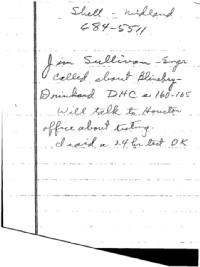 Shell - Midland
684-5511
Jim Sullivan - Engr
called about Blinebry-
Drinkard DHC @ 160-165
Will talk to Houston
office about testing.
I said a 24 hr test OK